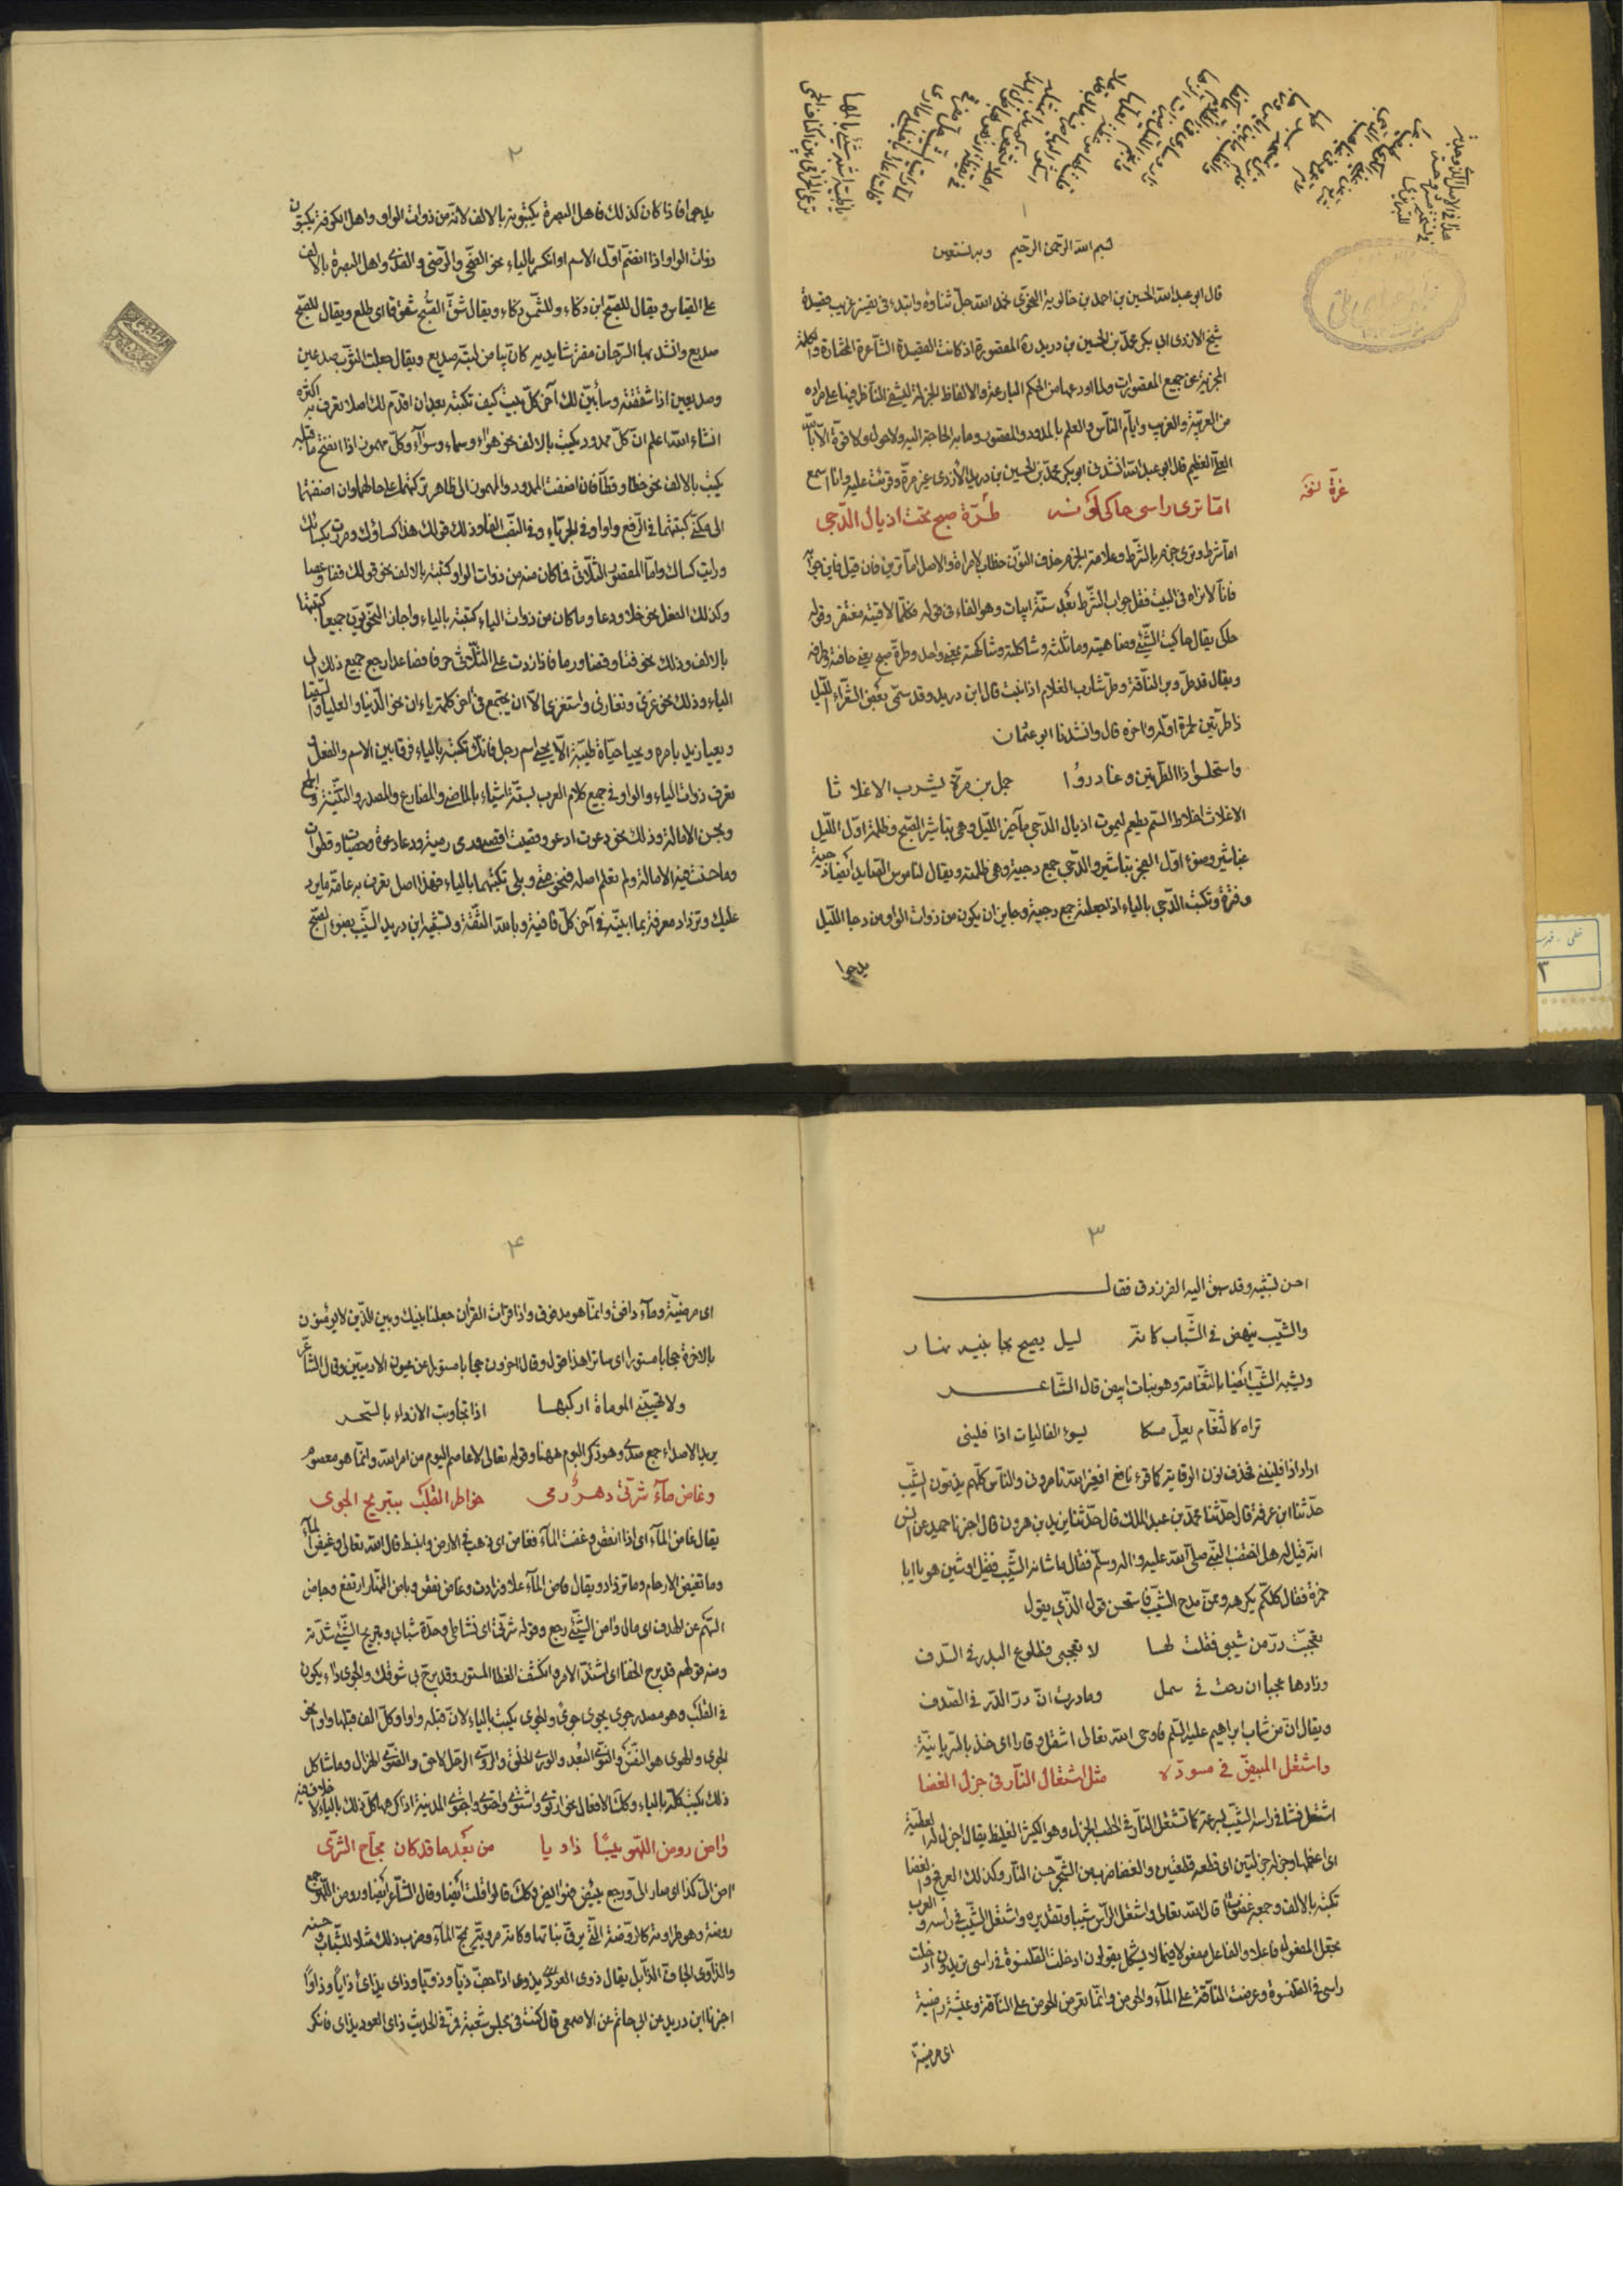 ١
بسم الله الرحمن الرحيم وبه نستعين
قال ابو عبد الله الحسين بن احمد بن خالويه النحوى نحمد الله جل ثناؤه وابتدء فى تفسير غريب قصيدة
شيخ الازدى ابى بكر محمد بن الحسين بن دريد ره المقصورة اذ كانت القصيدة الشاعرة المختارة والكلمة
المجزية عن جميع المقصورات ولما اودعها من الحكم البارعة والالفاظ الجزلة ليشفى الناظر فيها على مراده
من العربية والغريب وايام الناس والعلم بالممدود والمقصور وما به الحاجة اليه ولا حول ولا قوة الا بالله
العلى العظيم قال ابو عبد الله انشدنى ابو بكر محمد بن الحسين بن دريد الأزدى غير مرة وقرئت عليه وانا اسمع
غرة نسخه
امّا ترى راسى حاكى لونه طُرّة صبح تحت اذيال الدّجى
اما شرط وترى جزم بالشرط وعلامة الجزم حذف النون خطاب لامراة والاصل اما ترين فان قيل فاين جوابه
فانا لا نراه فى البيت فقل جواب الشرط بعد ستة ابيات وهو الفاء فى قوله فكلما لاقيته مغتفر وقوله
حاكى يقال حاكيت الشيء وضاهيته وماثلته وشاكلته وشاكهته بمعنى واحد وطرة صبح يعنى حافته وطرفه
ويقال قد طرّ وبر الناقة وطرّ شارب الغلام اذا نبت قال ابن دريد وقد سمى بعض الشعراء الليل
ذا طرتين لحمرة اوله واخره قال وانشدنا ابو عثمان
واستحلسوا ذا الطرتين وغادروا حمل بن مرّة يشرب الاغلاثا
الاغلاث اخلاط السم يطعم ليموت اذيال الدجى مآخير الليل وهى تباشير الصبح وظلمة اول الليل
غباشير وضوء اول الفجر تباشير والدجى جمع دجية وهى ظلمته ويقال لناموس الصايد ايضا دجية
وقترة وتكتب الدجى بالياء اذا جعلته جمع دجية وجايز ان يكون من ذوات الواو من دجا الليل
يدجوا
٢
يدجوا فاذا كان كذلك فاهل البصرة يكتبونه بالالف لانه من ذوات الواو واهل الكوفة يكتبون
ذوات الواو اذا انضم اول الاسم او انكسر بالياء نحو الضحى والرضى والفدى واهل البصرة بالالف
على القياس ويقال للصبح ابن ذكاء وللشمس ذكاء ويقال شق الصبح شقوقا اى طلع ويقال للصبح
صديع وانشد بها السرحان مفترشا يديه كان بياض لبته صديع ويقال جعلت الثوب صدعين
وصديعين اذا شققته وسأبين لك آخر كل بيت كيف تكتبه بعد ان اقدم لك اصلا تعرف به اكثره
انشاء الله اعلم ان كل ممدود يكتب بالالف نحو هواء وسماء وسواء وكل مهموز اذا انفتح ما قبله
يكتب بالالف نحو خطأ وقطأ فان اضفت الممدود والمهموز الى ظاهر تركتهما على حالهما وان اضفتهما
الى مكنى كتبتهما فى الرفع واوا وفى الجر ياء وفى النصب الفا وذلك قولك هذا كساؤك ومررت بكسائك
ورايت كساك واما المقصور الثلاثى فما كان منه من ذوات الواو كتبته بالالف نحو قولك قفا وعصا
وكذلك الفعل نحو خلا ودعا وما كان من ذوات الياء كتبته بالياء واجاز النحويون جميعا كتبتها
بالالف وذلك نحو فتا وقضا ورما فاذا زدت على الثلاثى حرفا فصاعدا رجع جميع ذلك الى
الياء وذلك نحو غزى وتغازى واستغزى الا ان يجتمع فى آخر كلمة ياءان نحو الدنيا والعليا والسقيا
ويعيا زيد بامره ويحيا حياة طيبة الا يحيى اسم رجل فانك تكتبه بالياء فرقا بين الاسم والفعل
تعرف ذوات الياء والواو فى جميع كلام العرب بستة اشياء بالماضى والمضارع والمصدر والتثنية والجمع
وبحسن الامالة وذلك نحو دعوت ادعو وقضيت اقضى ورمى رمية ودعا دعوة وحصيات وقطوات
وما حسنت فيه الامالة ولم تعلم اصله فنحو متى وبلى تكتبهما بالياء فهذا اصل تعرف به عامة ما يرد
عليك وتزداد معرفة بما ابينه فى آخر كل قافية وبالله الثقة وتشبيه ابن دريد الشيب بضوء الصبح
٣
احسن تشبيه وقد سبق اليه الفرزدق فقال
والشيب ينهض فى الشباب كانه ليل يصيح بجانبيه نهار
ويشبه الشيب ايضا بالثغامة وهو نبات ابيض قال الشاعر
تراه كالثغام يعلّ مسكا يسوء الفاليات اذا فلينى
اراد اذا فليننى فحذف نون الوقاية كما قرء نافع افغير الله تامرونى والناس كلهم يذمون الشيب
حدثنا ابن عرفة قال حدثنا محمد بن عبد الملك قال حدثنا يزيد بن هرون قال اخبرنا حميد عن انس
انه قيل له هل اختضب النبى صلى الله عليه واله وسلم فقال ما شانه الشيب فقيل اوشين هو يا ابا
حمزة فقال كلكم يكرهه وممن مدح الشيب فاستحسن قول الذى يقول
تعجبت درّ من شيبى فقلت لها لا تعجبى فطلوع البدر فى السدف
وزادها عجبا ان رحت فى سمل وما درت ان درّ الدر فى الصدف
ويقال ان من شاب ابراهيم عليه السلم فاوحى الله تعالى اشقل وقارا اى خذ بالسريانية
واشتعل المبيضّ فى مسودّه مثل اشتعال النار فى جزل الغضا
اشتعل فشا فى راسه الشيب بسرعة كما تشتعل النار فى الحطب الجزل وهو الكبير الغليظ يقال اجزل له العطية
اى اعظمها وجزله جزلتين اى قطعه قطعتين والغضا ضرب من الشجر حسن النار وكذلك العرفج والغضا
تكتبه بالالف وجمعه غضوات قال الله تعالى واشتعل الراس شيبا وتقديره واشتعل الشيب فى راسه والعرب
تجعل المفعول فاعلا والفاعل مفعولا فيما لا يشكل يقولون ادخلت القلنسوة فى راسى تريدون ادخلت
راسى فى القلنسوة وعرضت الناقة على الماء والحوض وانما تعرض الحوض على الناقة وعيشة راضية
اى مرضية
۴
اى مرضية وماء دافق وانما هو مدفوق واذا قرات القران جعلنا بينك وبين الذين لا يؤمنون
بالاخرة حجابا مستورا اى ساترا هذا قول وقال اخرون حجابا مستورا عن عيون الادميين وقال الشاعر
ولا تهيّبنى الموماة اركبها اذا تجاوبت الاصداء بالسحر
يريد الاصداء جمع صدى وهو ذكر البوم ههنا وقوله تعالى لا عاصم اليوم من امر الله وانما هو معصوم
وغاض ماءَ شرتى دهر رمى خواطر القلب بتبريح الجوى
يقال غاض الماء اى اذا انقض وغضت الماء فغاض اى ذهب فى الارض وانهبط قال الله تعالى وغيض الماء
وما تغيض الارحام وما تزداد ويقال فاض الماء علا وزادت وغاض نقص وباض النهار ارتفع وجاض
السهم عن الهدف اى مال وآض الشيء رجع وقوله شرتى اى نشاطى وحدّة شبابى وتبريح الشيء شدته
ومنه قولهم قد برح الخفا اى اشتد الامر وانكشف الغطا المستور وقد برح بى شوقك والجوى داء يكون
فى القلب وهو مصدر جوى يجوى جوىً والجوى يكتب بالياء لان قبله واوا وكل الف قبلها واو نحو
الجوى والهوى هو النفس والنوى البعد والورى الخلق والروى الرجل الاحمق والضوى الهزال وما شاكل
ذلك يكتب كله بالياء وكذا الافعال نحو ارتوى واشتوى واحتوى واجتوى المدينة اذا كرهها كل ذلك بالياء لا خلاف فيه
وآض روض اللهو يبسًا ذاويا من بعد ما قد كان مجاج الثرى
آض الى كذا اى صار الى ورجع يئيض فهو ائيض وكذا قالوا قلت ايضا وقال الشاعر ايضا وروض اللهو جمع
روضة وهو طراوته كالروضة التى يرق نباتها وكانه مروية يمج الماء وضرب ذلك مثلا للشباب وحسنه
والذاوى الجاف الذابل يقال ذوى العود يذوى اذا جف ذيا وذويا وذاى يذاى ذايا وذاوا
اخبرنا ابن دريد عن ابى حاتم عن الاصمعى قال كنت فى مجلس شعبة فمرّ فى الحديث ذاى العود يذاى فانكر